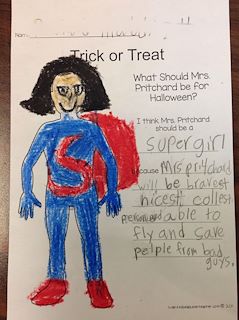 Nam
Trick or Treat
What Should Mrs.
Pritchard be for
Halloween?
I think Mrs. Pritchard
should be a
supergirl
because Mrs pritchard
will be bravest
nicest collest
able to
fly and save
people from bad
guys.
S